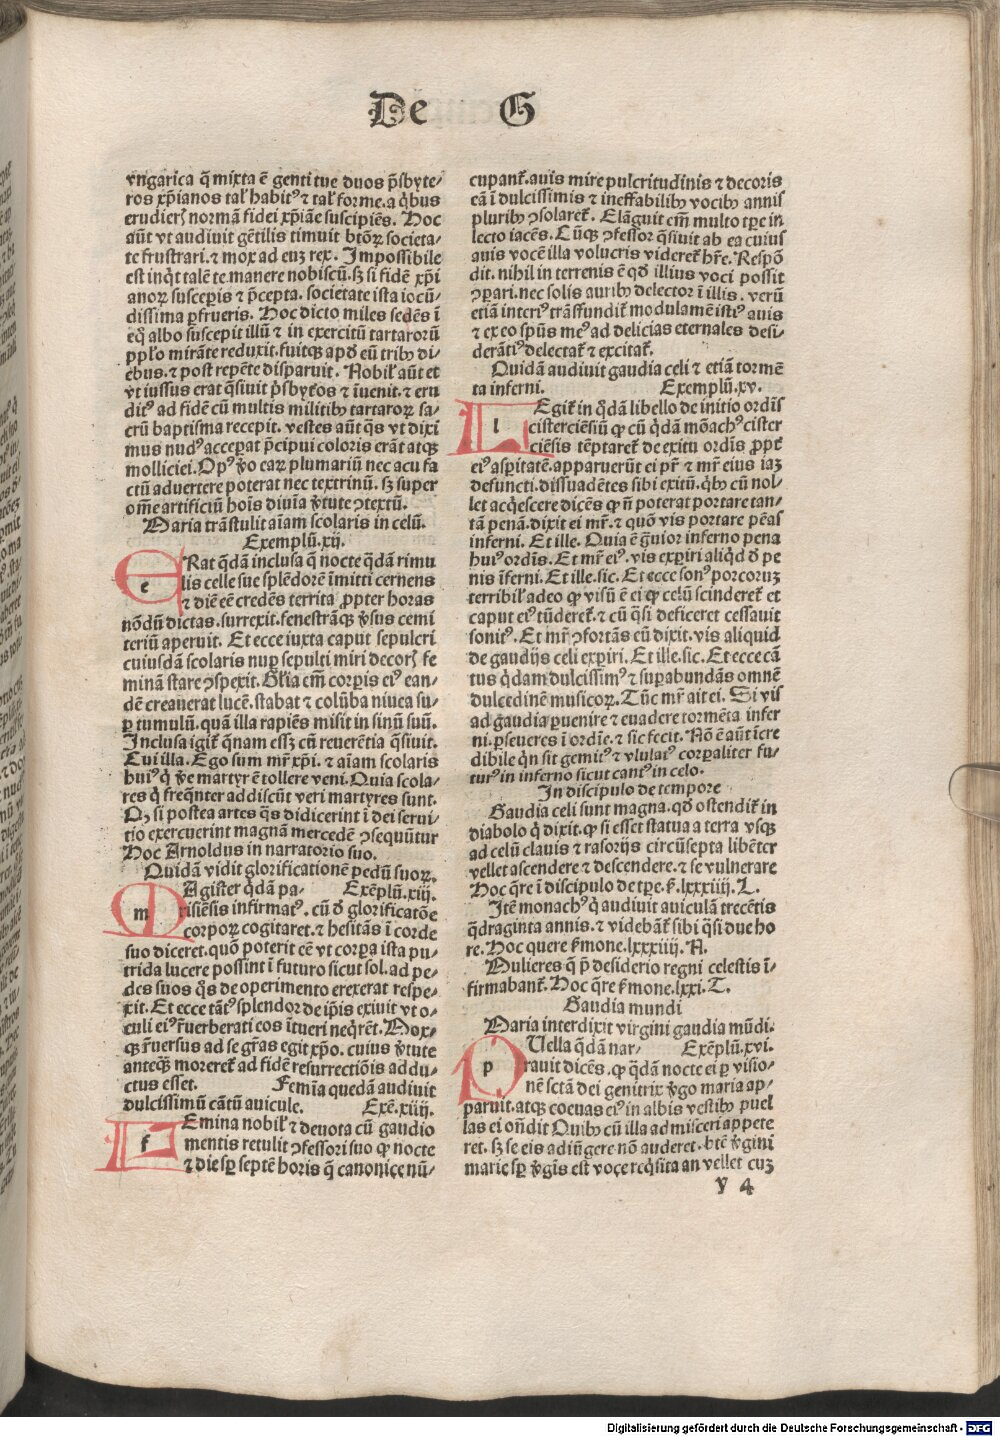 De G
vngarica q̄ mixta ē genti tue duos p̄sbyte/
ros xp̄ianos tal' habitꝰ ⁊ tal' forme. a q̇bus
erudieris normā fidei xp̄iāe suscipiēs. Hoc
aūt vt audiuit gētilis timuit btōꝝ societa/
te frustrari. ⁊ mox ad eūꝫ rex. Impossibile
est inq̇t talē te manere nobiscū. sꝫ si fidē xp̄i
anoꝝ susceperis ⁊ p̄cepta. societate ista iocū/
dissima ꝑfrueris. Hoc dicto miles sedēs ī
eq̇ albo suscepit illū ⁊ in exercitū tartaroꝝ
pp̄lo mirāte reduxit. fuitqꝫ apd̓ eū tribꝰ di/
ebus. ⁊ post repēte disparuit. Nobil' aūt et
vt iussus erat q̄siuit p̄sbyt̓os ⁊ īuenit. ⁊ eru
ditꝰ ad fidē cū multis militibꝰ tartaroꝝ sa/
crū baptisma recepit. vestes aūt q̄s vt dixi
mus nudꝰ acceperat p̄cipui coloris erāt atqꝫ
molliciei. Opꝰ v̓o eaꝝ plumariū nec acu fa
ctū aduertere poterat nec textrinū. sꝫ super
om̄e artificiū hoīs diuīa v̓tute ꝯtextū.
Maria trāstulit aīam scolaris in celū.
Exemplū. xij.
ERat q̄dā inclusa q̄ nocte q̄dā rimu
lis celle sue splēdorē īmitti cernens
⁊ diē eē credēs territa ꝓpter horas
nōdū dictas. surrexit. fenestrāqꝫ v̓sus cemi
teriū aperuit. Et ecce iuxta caput sepulcri
cuiusdā scolaris nuꝑ sepulti miri decoris fe
minā stare ꝯspexit. Gl'ia em̄ corꝑis eiꝰ ean/
dē creauerat lucē. stabat ⁊ colūba niuea su/
ꝑ tumulū. quā illa rapiēs misit in sinū suū.
Inclusa igit̓ q̄nam esset cū reuerētia q̄siuit.
Cui illa. Ego sum mr̄ xp̄i. ⁊ aīam scolaris
huiꝰ q̇ v̓e martyr ē tollere veni. Quia scola/
res q̇ freq̄nter addiscūt veri martyres sunt.
Qꝫ si postea artes q̄s didicerint ī dei serui/
tio exercuerint magnā mercedē ꝯsequūtur
Hoc Arnoldus in narratorio suo.
Quidā vidit glorificationē pedū suoꝝ.
MAgister q̄dā pa/ Exēplū. xiij.
risiēsis infirmatꝰ. cū d̓ glorificatōe
corpoꝝ cogitaret. ⁊ hesitās ī corde
suo diceret. quō poterit eē vt corꝑa ista pu/
trida lucere possint ī futuro sicut sol. ad pe/
des suos q̄s de operimento erexerat respe/
xit. Et ecce tātꝰ splendor de ip̄is exiuit vt o/
culi eiꝰ r̓uerberati eos ītueri neq̇rēt. Mox/
qꝫ r̓uersus ad se gr̄as egit xp̄o. cuius v̓tute
anteqꝫ morereť ad fidē resurrectiōis addu/
ctus esset. Femīa quedā audiuit
dulcissimū cātū auicule. Exē. xiiij.
FEmina nobil' ⁊ deuota cū gaudio
mentis retulit ꝯfessori suo ꝙ nocte
⁊ die sꝑ septē horis q̄ canonice nū/
cupant̓. auis mire pulcritudinis ⁊ decoris
eā ī dulcissimis ⁊ ineffabilibꝰ vocibꝰ annis
pluribꝰ ꝯsolareť. Elāguit em̄ multo tꝑe in
lecto iacēs. Cūqꝫ ꝯfessor q̄siuit ab ea cuius
auis vocē illa volucris videreť hr̄e. Respō
dit. nihil in terrenis ē qd̓ illius voci possit
ꝯꝑari. nec solis auribꝰ delector ī illis. verū
etiā interiꝰ trāsfundit̓ modulamē istiꝰ auis
⁊ ex eo sp̄us meꝰ ad delicias eternales desi/
derātiꝰ delectat̓ ⁊ excitat̓.
Quidā audiuit gaudia celi ⁊ etiā tormē
ta inferni. Exemplū. xv.
LEgit̓ in q̇dā libello de initio ordīs
cisterciēsiū ꝙ cū q̇dā mōachꝰ cister
ciēsis tēptareť de exitu ordīs ꝓpt̓
eiꝰ asꝑitatē. apparuerūt ei pr̄ ⁊ mr̄ eius iaꝫ
defuncti. dissuadētes sibi exitū. q̇bꝰ cū nol/
let acq̇escere dicēs ꝙ nō poterat portare tan/
tā penā. dixit ei mr̄. ⁊ quō vis portare pēas
inferni. Et ille. Quia ē g̓uior inferno pena
huiꝰ ordīs. Et mr̄ eiꝰ. vis exꝑiri aliq̇d d̓ pe
nis īferni. Et ille. sic. Et ecce sonꝰ porcoruꝫ
terribil' adeo ꝙ visū ē ei ꝙ celū scindereť et
caput eiꝰ tūdereť. ⁊ cū q̄si deficeret cessauit
sonitꝰ. Et mr̄ ꝯfortās eū dixit. vis aliquid
de gaudijs celi exꝑiri. Et ille. sic. Et ecce cā
tus q̇dam dulcissimꝰ ⁊ suꝑabundās omnē
dulcedinē musicoꝝ. Tūc mr̄ ait ei. Si vis
ad gaudia ꝑuenire ⁊ euadere tormēta infer
ni. ꝑseueres ī ordīe. ⁊ sic fecit. Nō ē aūt īcre
dibile q̇n sit gemitꝰ ⁊ vlulatꝰ corꝑaliter fu/
turꝰ in inferno sicut cantꝰ in celo.
In discipulo de tempore
Gaudia celi sunt magna. qd̓ ostendit̓ in
diabolo q̇ dixit. ꝙ si esset statua a terra vsqꝫ
ad celū clauis ⁊ rasorijs circūsepta libēter
vellet ascendere ⁊ descendere. ⁊ se vulnerare
Hoc q̄re ī discipulo de tꝑe. s̓. lxxxiiij. L.
Itē monachꝰ q̇ audiuit auiculā trecētis
q̄draginta annis. ⁊ videbāt̓ sibi q̄si due ho
re. Hoc quere s̓mone. lxxxiiij. A.
Mulieres q̄ p̄ desiderio regni celestis ī/
firmabant̓. Hoc q̄re s̓mone. lxxi. T.
Gaudia mundi
Maria interdixit virgini gaudia mūdi.
PUella q̄dā nar/ Exēplū. xvi.
rauit dicēs. ꝙ q̄dā nocte ei ꝑ visio/
nē sctā dei genitrix v̓go maria ap/
paruit. atqꝫ coeuas eiꝰ in albis vestibꝰ puel
las ei on̄dit Quibꝰ cū illa admisceri appete
ret. sꝫ se eis adiūgere nō auderet. btē v̓gini
marie sꝑ v̓gīs est voce req̇sita an vellet cuꝫ
y 4
Digitalisierung gefördert durch die Deutsche Forschungsgemeinschaft - DFG